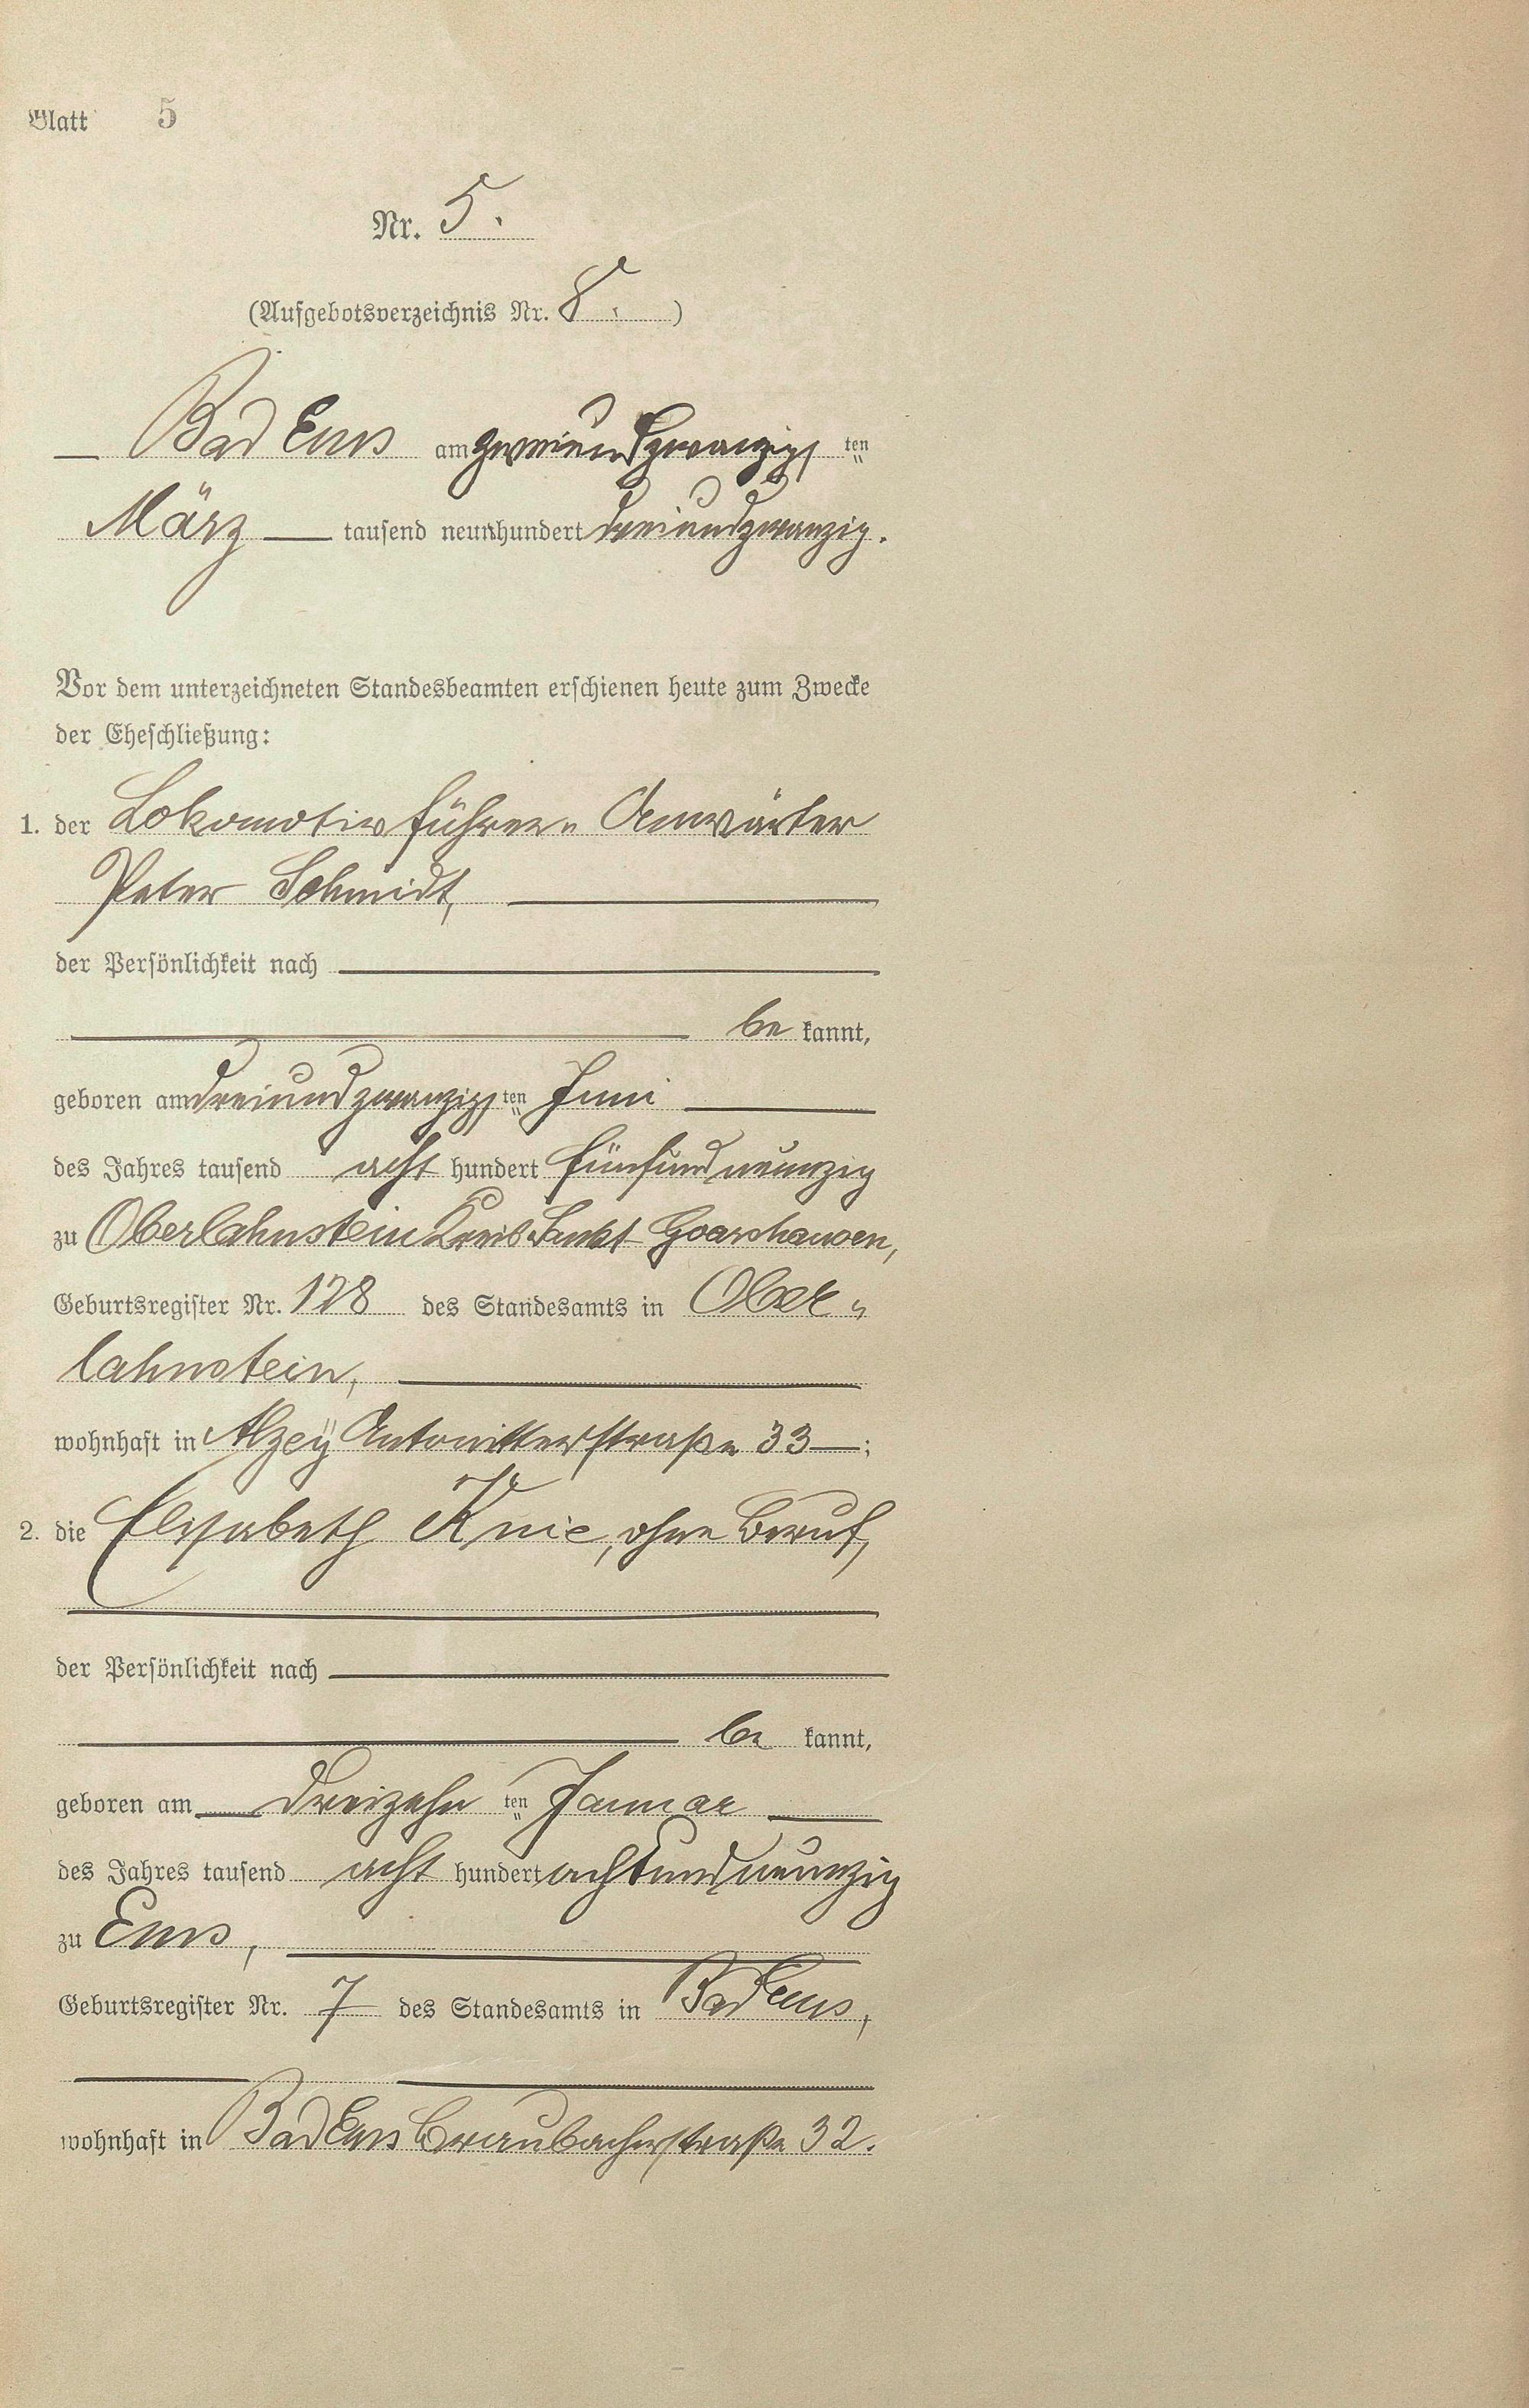 Blatt 5
Nr. 5.
(Aufgebotsverzeichnis Nr. 8.)
Bad Ems am zweiundzwanzigsten
März tausend neunhundert dreiundzwanzig.
Vor dem unterzeichneten Standesbeamten erschienen heute zum Zwecke
der Eheschließung:
1. der Lokomotivführer-Anwärter
Peter Schmidt,
der Persönlichkeit nach
be kannt,
geboren am dreiundzwanzigsten Juni
des Jahres tausend acht hundert fünfundneunzig
zu Oberlahnstein Kreis Sankt Goarshausen,
Geburtsregister Nr. 128 des Standesamts in Ober-
lahnstein,
wohnhaft in Alzey Antoniterstraße 33 ;
2. die Elisabeth Knie, ohne Beruf,
der Persönlichkeit nach
be kannt,
geboren am dreizehnten Januar
des Jahres tausend acht hundert achtundneunzig
zu Ems,
Geburtsregister Nr. 7 des Standesamts in Bad Ems,
wohnhaft in Bad Ems Braubacherstraße 32.